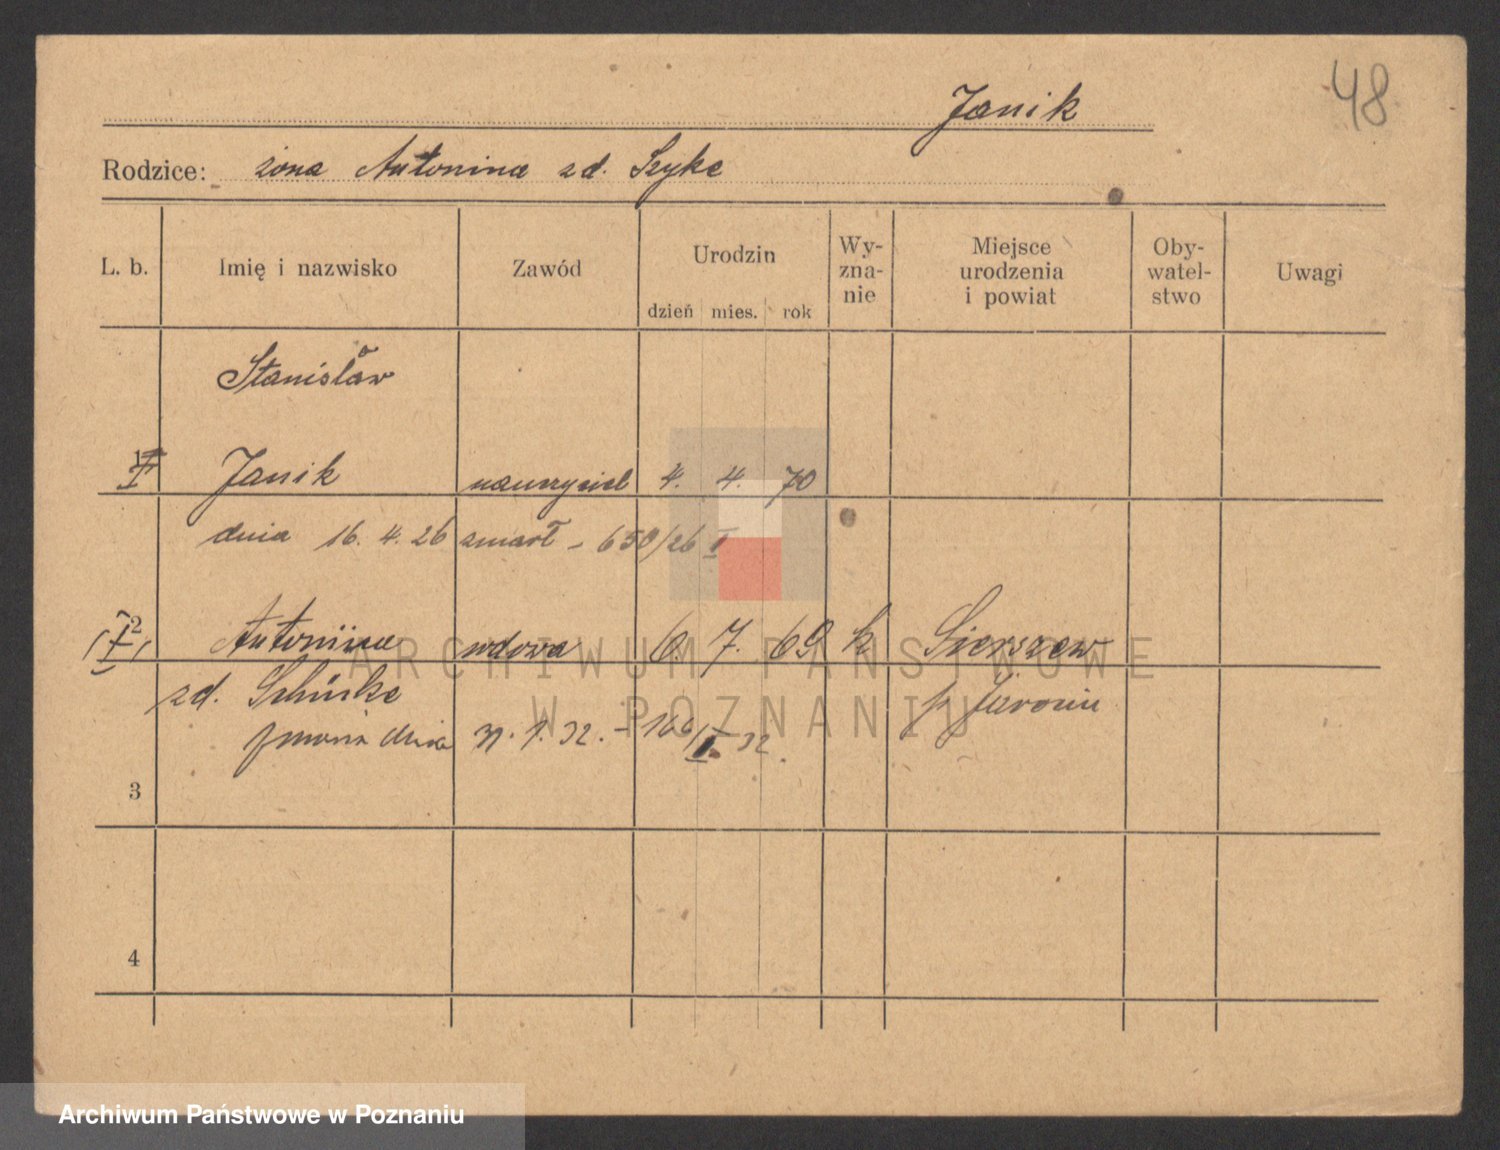 48
Janik
Rodzice: żona Antonina zd. Szyke
L. b. Imię i nazwisko Zawód Urodzin dzień mies. rok Wy-zna-nie Miejsce urodzenia i powiat Oby-watel-stwo Uwagi
Stanisław
Janik nauczyciel 4. 4. 70
dnia 16. 4. 26 zmarł - 650/26 I
2 Antonina wdowa 6. 7. 69 k Sierszew
zd. p. Jarocin
zmarła dnia 31. 1. 32. - 166/I 32
3
4
ARCHIWUM PAŃSTWOWE
W POZNANIU
Archiwum Państwowe w Poznaniu